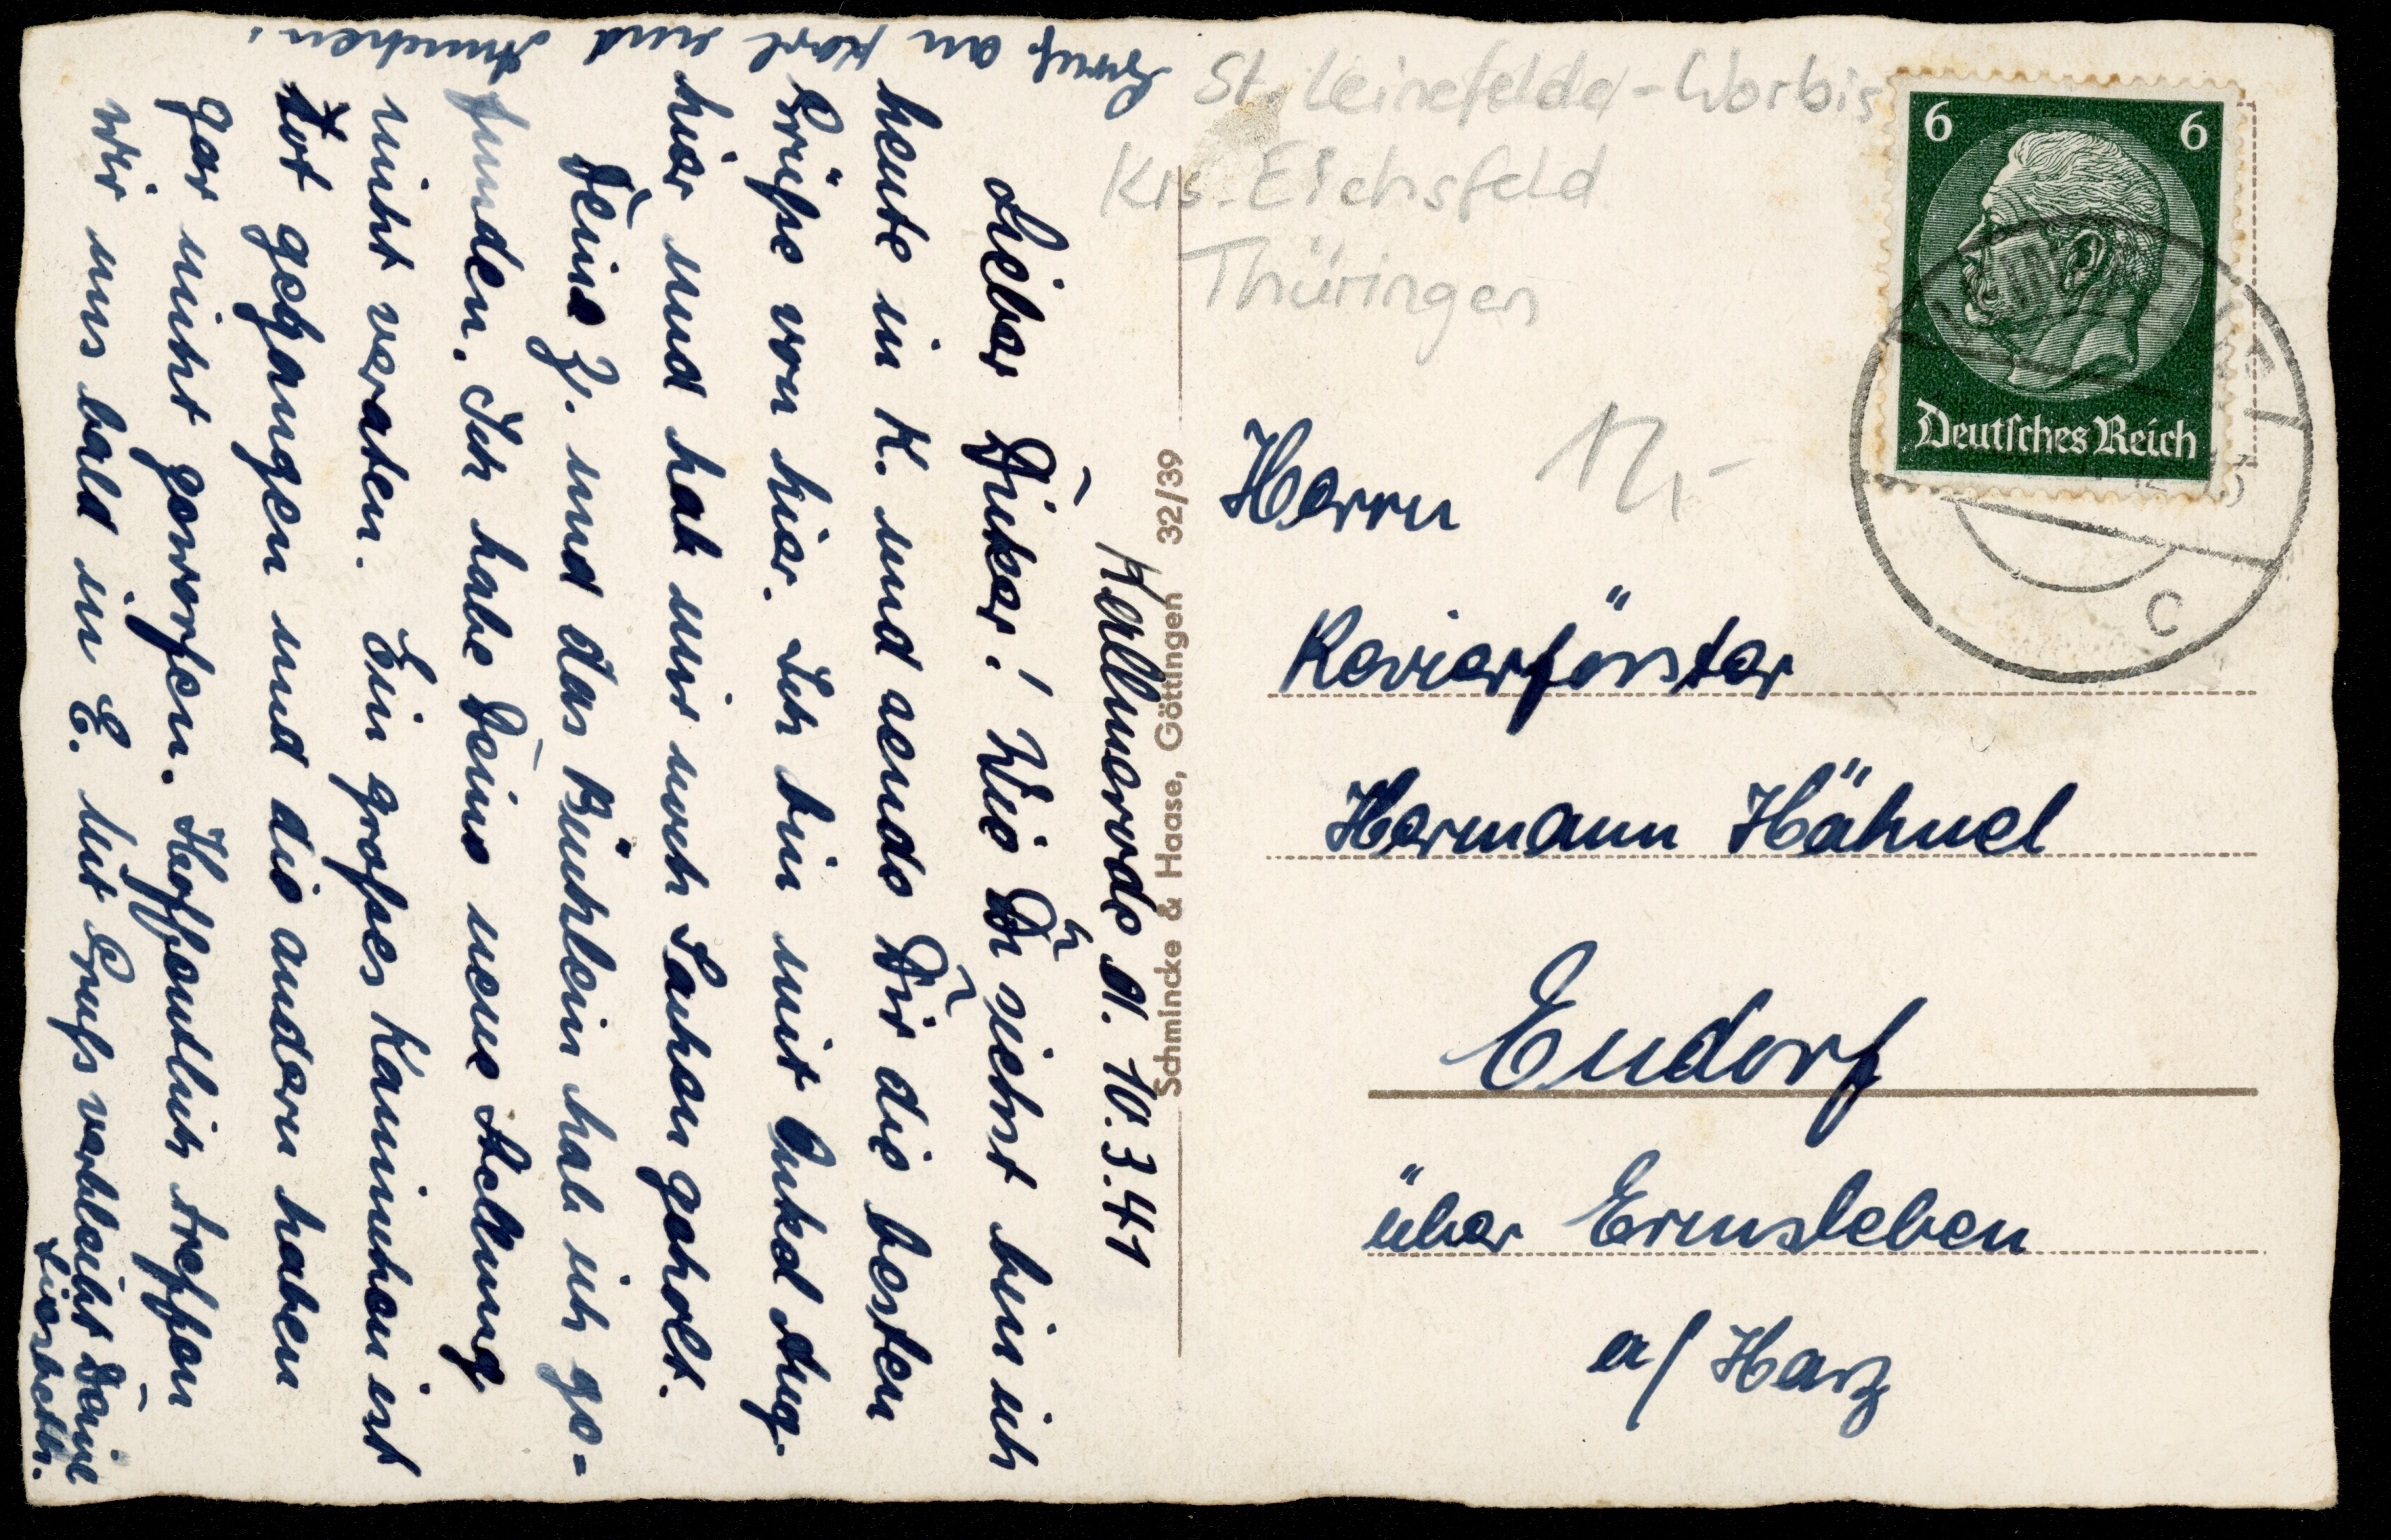 Kallmerode d. 10.3.41
Lieber Dicker! Wie Du siehst bin ich
heute in K. und sende Dir die besten
Grüße von hier. Ich bin mit Onkel Aug.
hier und hab mir noch Sachen geholt.
Deine Z. und das Büchlein hab ich ge-
funden. Ich habe Deine neue Stellung
nicht veraten. Ein großes Kaninchen ist
tot gegangen und die andern haben
gar nicht geworfen. Hoffendlich treffen
wir uns bald in E. Mit Gruß verbleibt Deine
Liesbeth.
Gruß an Karl und Annchen.
Schmincke & Haase, Göttingen 32/39
St. Leinefelde-Worbis
Krs. Eichsfeld
Thüringen
12,-
6 6
Deutsches Reich
c
Herrn
Revierförster
Hermann Hähnel
Endorf
über Ermsleben
a/ Harz